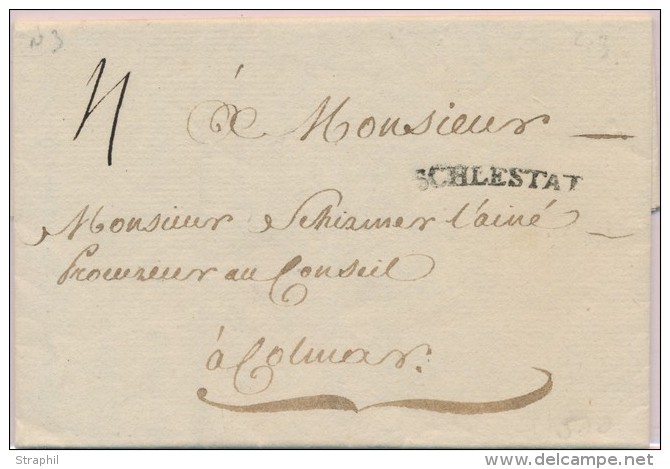 N 3
4
à Monsieur
SCHLESTAT
Monsieur Schirmer l'ainé
Procureur au Conseil
à Colmar.
Straphil
www.delcampe.net